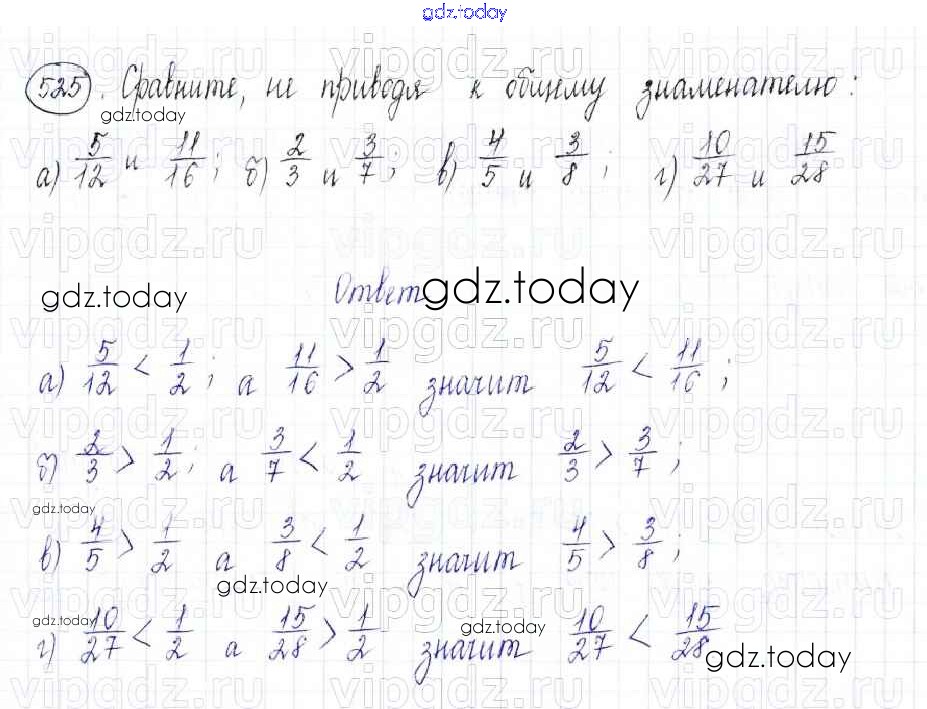 gdz.today
525. Сравните, не приводя к общему знаменателю:
gdz.today
а) 5/12 и 11/16; б) 2/3 и 3/7; в) 4/5 и 3/8; г) 10/27 и 15/28
gdz.today Ответ gdz.today
а) 5/12 < 1/2; а 11/16 > 1/2 значит 5/12 < 11/16;
б) 2/3 > 1/2; а 3/7 < 1/2 значит 2/3 > 3/7;
gdz.today
в) 4/5 > 1/2 а 3/8 < 1/2 значит 4/5 > 3/8;
gdz.today
gdz.today gdz.today
г) 10/27 < 1/2 а 15/28 > 1/2 значит 10/27 < 15/28
gdz.today
vipgdz.ru vipgdz.ru vipgdz.ru